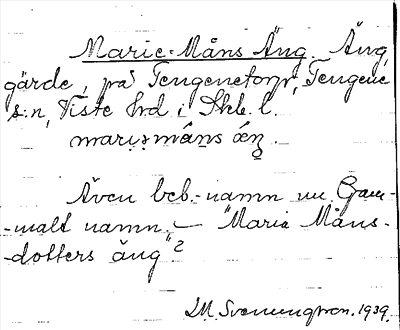 Marie-Måns Äng. Äng,
gärde, på Tengenetorp, Tengene
s:n, Viste hrd i Skb. l.
maris̩máns ǽŋ.
Även beb.-namn nu. Gam-
-malt namn. — "Maria Måns-
-dotters äng"?
D.M. Svenungsson. 1939.